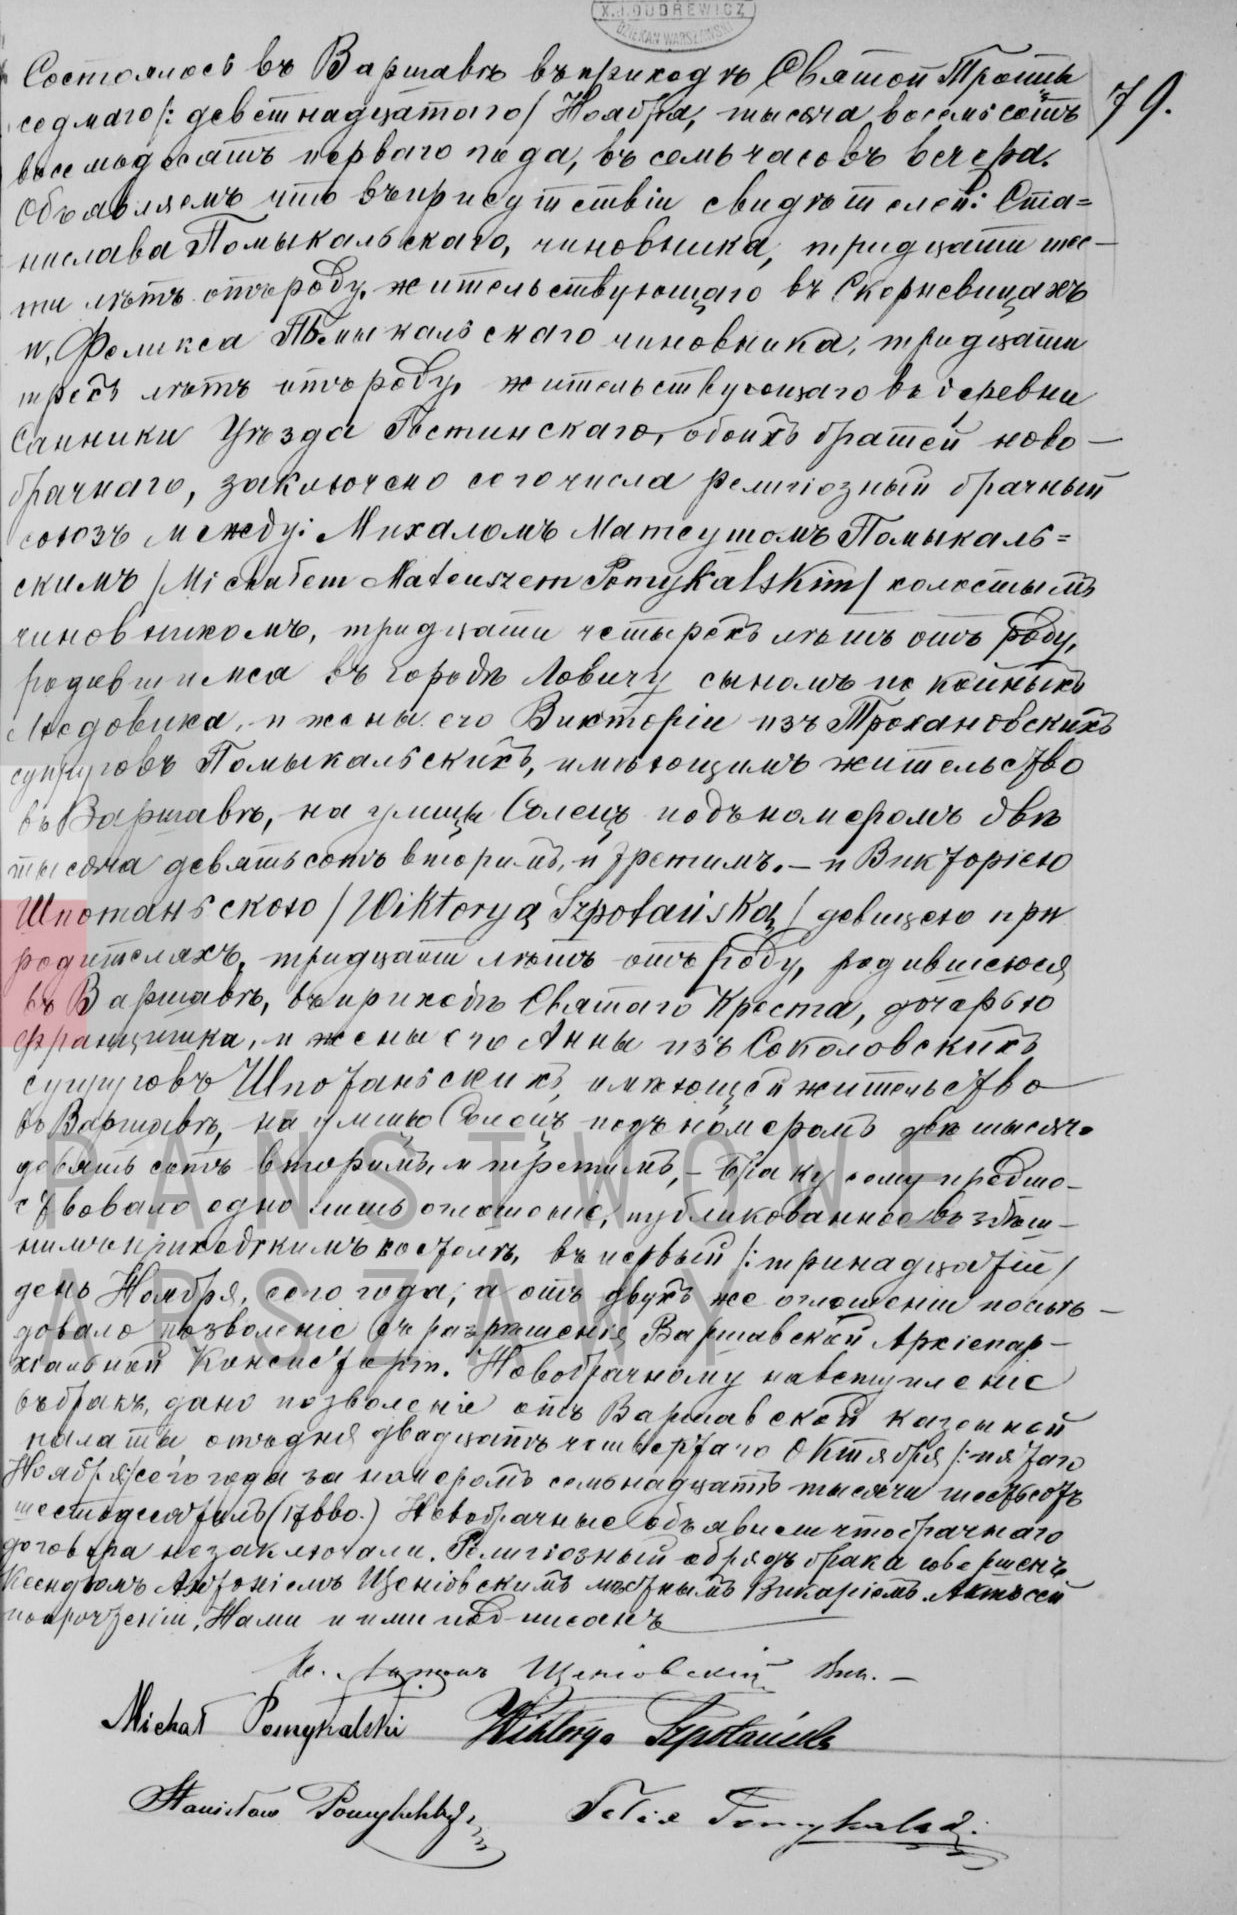 X.J.DUDREWICZ
DZIEKAN WARSZAWSKI
Состоялось въ Варшавѣ въ приходѣ Святой Троицы
79.
седмаго /: девятнадцатаго/ Ноября, тысяча восемьсотъ
восемьдесятъ перваго года, въ семь часовъ вечера.
Объявляемъ что въ присутствіи свидѣтелей: Ста=
нислава Помыкальскаго, чиновника, тридцати шес-
ти лѣтъ отъ роду, жительствующаго въ Скерневицахъ
и, Феликса Помыкальскаго чиновника, тридцати
трехъ лѣтъ отъ роду, жительствующаго въ деревни
Санники Уѣзда Гостинскаго, обоихъ братей ново-
брачнаго, заключено сего числа религіозный брачный
союзъ между: Михаломъ Матеушомъ Помыкаль=
скимъ /Michałem Mateuszem Pomykalskim/ холостымъ
чиновникомъ, тридцати четырехъ лѣтъ отъ роду,
родившимся въ городѣ Ловичу сыномъ покойныхъ
Людовика, и жены его Викторіи изъ Трохановскихъ
супруговъ Помыкальскихъ, имѣющимъ жительство
въ Варшавѣ, на улицы Солецъ подъ номеромъ двѣ
тысяча девятьсотъ вторимъ, и третимъ. – и Викторіею
Шпотаньскою /Wiktoryą Szpotańską/ девицею при
родителяхъ, тридцати лѣтъ отъ роду, родившеюся
въ Варшавѣ, въ приходѣ Святаго Креста, дочерью
Францишка, и жены его Анны изъ Соколовскихъ
супруговъ Шпотаньскихъ, имѣющей жительство
въ Варшавѣ, на улицы Солецъ подъ номеромъ двѣ тысяч=
девятьсотъ вторимъ, и третимъ, – Браку сему предше-
ствовало одно лишь оглашеніе, публикованное въ здѣш-
нимъ приходскимъ костелѣ, въ первый /: тринадцатый/
день Ноября, сего года; а отъ двухъ же оглошеніи послѣ-
довало позволеніе съ разрѣшенія Варшавской Архіепар-
хіальной Консисторіи. Новобрачному на вступленіе
въ бракъ, дано позволеніе отъ Варшавской казенной
палаты, отъ дня двадцать четвертаго Октября /: пятаго
Ноября/ сего года за номеромъ семьнадцать тысячи шестьсотъ
шестьдесятымъ (17660.) Новобрачные объявили что брачнаго
договора незаключали. Религіозный обрядъ брака совершенъ
Ксендзомъ Антоніемъ Щеніовскимъ мѣстнымъ Викаріемъ. Актъ сей
по прочтеніи, Нами и ими подписанъ
Кс. Антонъ Щеніовскій Вик. –
Michał Pomykalski Wiktorya Szpotańska
Stanisław Pomykalski Felix Pomykalski.
PAŃSTWOWE
ARSZAWY